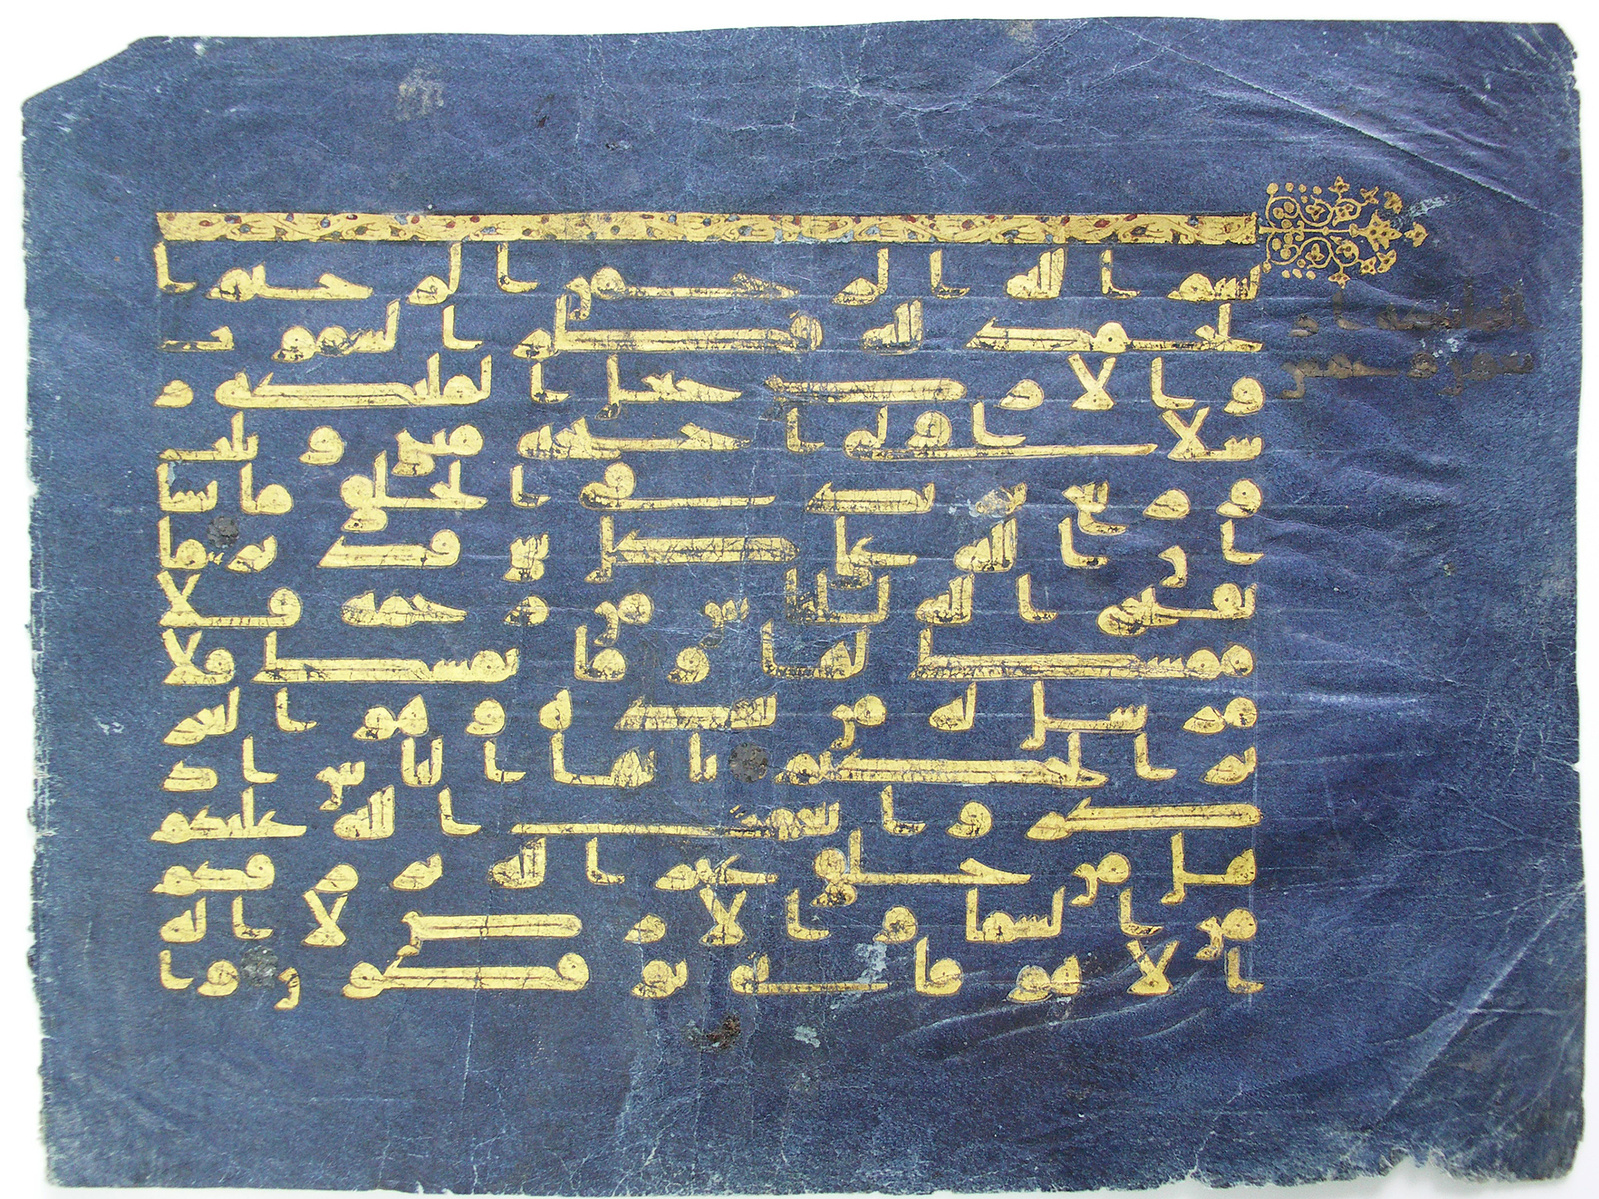 بسم الله الرحمن الرحيم ا
لحمد لله فطر السموت
و الارض جعل الملئكة ر
سلا اولى اجنحة مثنى و ثلث
و ربع يزيد فى الخلق ما يشا
ان الله على كل شى قدير ما
يفتح الله للناس من رحمة فلا
ممسك لها و ما يمسك فلا
مرسل له من بعده و هو العز
يز الحكيم يايها الناس اذ
كروا نعمت الله عليكم
هل من خلق غير الله يرزقكم
من السما و الارض لا اله
الا هو فانى توفكون و ا